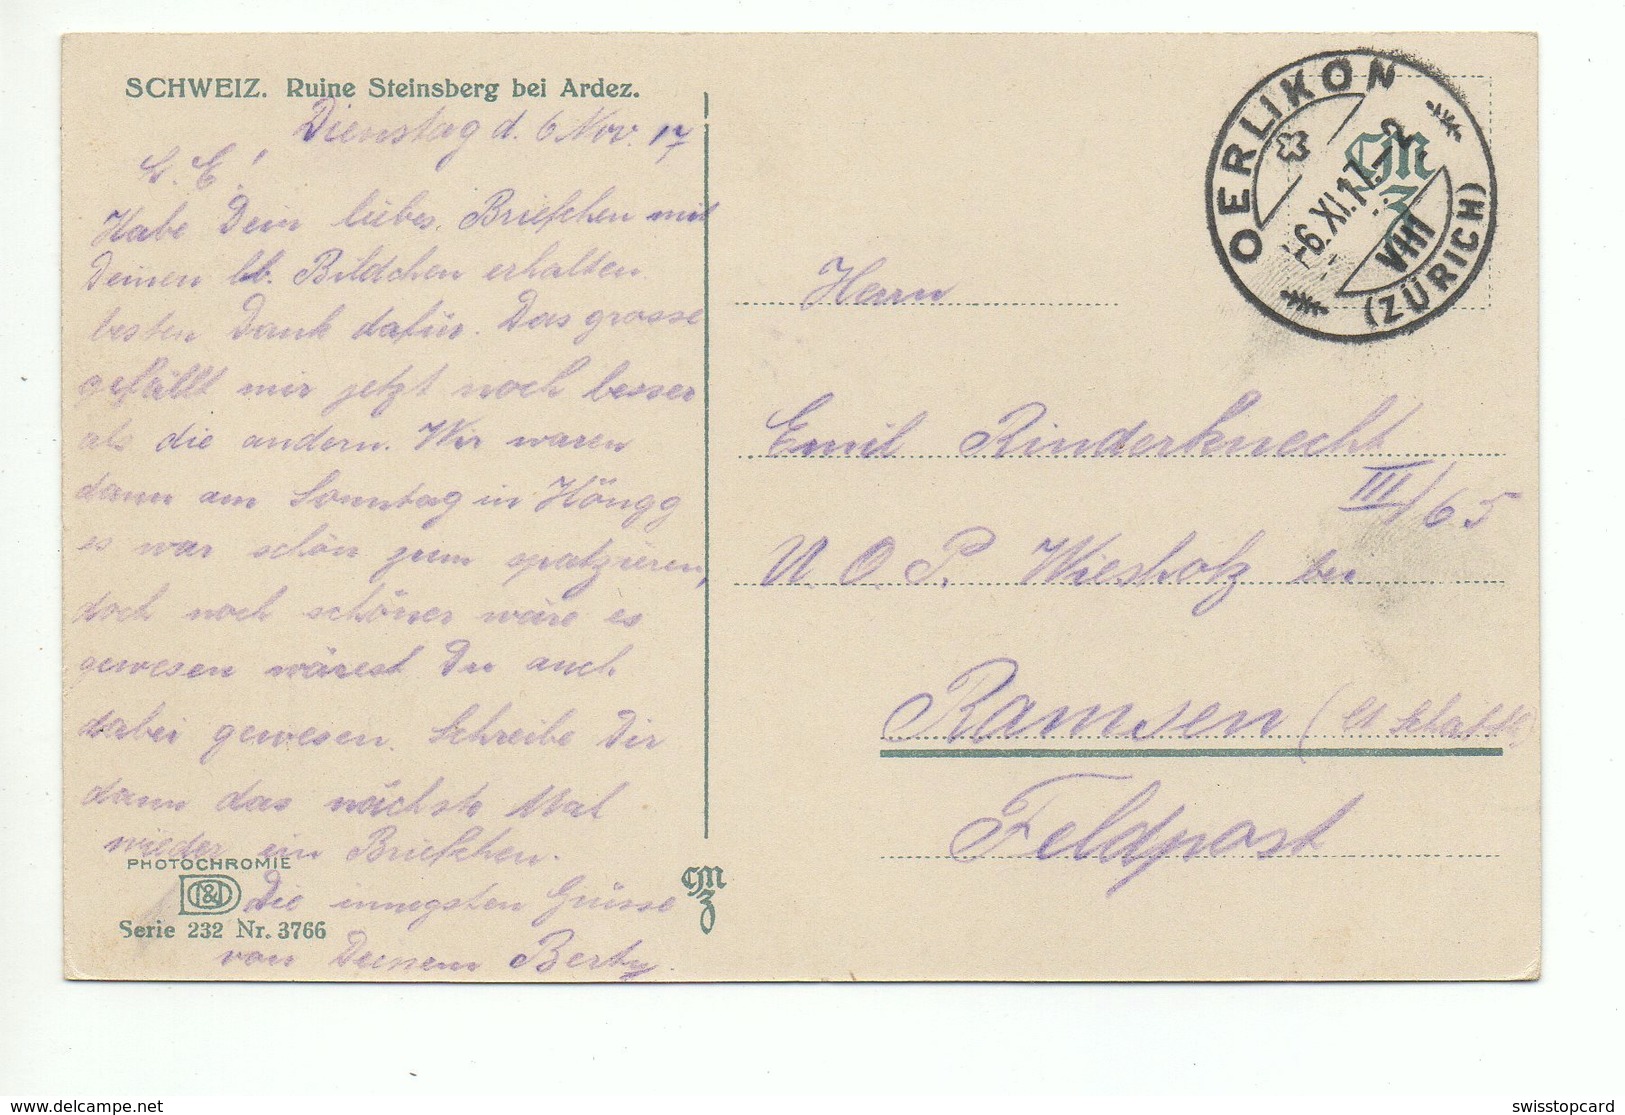 SCHWEIZ. Ruine Steinsberg bei Ardez.
Dienstag d. 6 Nov. 17
L. E!
Habe Dein liebes Briefchen mit
Deinen lb. Bildchen erhalten
besten Dank dafür. Das grosse
gefällt mir jetzt noch besser
als die andern. Wir waren
dann am Sonntag in Höngg
es war schön zum spatzieren,
doch noch schöner wäre es
gewesen wärest Du auch
dabei gewesen. Schreibe Dir
dann das nächste Mal
wieder ein Briefchen.
Die innigsten Grüsse
von Deinem Berty.
PHOTOCHROMIE
Serie 232 Nr. 3766
OERLIKON
-6.XI.17.-2
VIII
(ZÜRICH)
Herrn
Emil Rinderknecht
III/65
U. O. P. Wiesholz bei
Ramsen (Ct Schaffh)
Feldpost
swisstopcard
http://www.delcampe.net